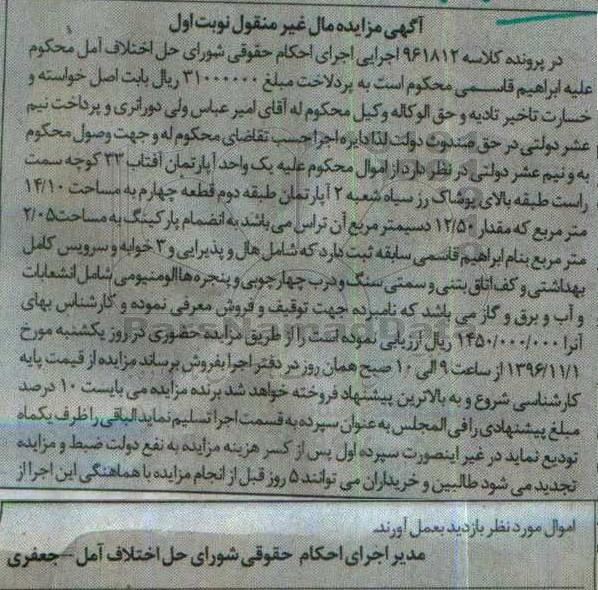 آگهی مزایده مال غیر منقول نوبت اول
در پرونده کلاسه ۹۶۱۸۱۲ اجرایی اجرای احکام حقوقی شورای حل اختلاف آمل محکوم
علیه ابراهیم قاسمی محکوم است به پرداخت مبلغ ۳۱۰۰۰۰۰۰ ریال بابت اصل خواسته و
خسارت تاخیر تادیه و حق الوکاله وکیل محکوم له آقای امیر عباس ولی دورانری و پرداخت نیم
عشر دولتی در حق صندوق دولت لذا دایره اجرا حسب تقاضای محکوم له و جهت وصول محکوم
به و نیم عشر دولتی در نظر دارد از اموال محکوم علیه یک واحد آپارتمان آفتاب ۳۳ کوچه سمت
راست طبقه بالای پوشاک رز سیاه شعبه ۲ آپارتمان طبقه دوم قطعه چهارم به مساحت ۱۴/۱۰
متر مربع که مقدار ۱۲/۵۰ دسیمتر مربع آن تراس می باشد به انضمام پارکینگ به مساحت ۲/۰۵
متر مربع بنام ابراهیم قاسمی سابقه ثبت دارد که شامل هال و پذیرایی و ۳ خوابه و سرویس کامل
بهداشتی و کف اتاق بتنی و سمتی سنگ و درب چهارچوبی و پنجره ها آلومنیومی شامل انشعابات
و آب و برق و گاز می باشد که نامبرده جهت توقیف و فروش معرفی نموده و کارشناس بهای
آنرا ۱۴۵۰/۰۰۰/۰۰۰ ریال ارزیابی نموده است را از طریق مزایده حضوری در روز یکشنبه مورخ
۱۳۹۶/۱۱/۱ از ساعت ۹ الی ۱۰ صبح همان روز در دفتر اجرا بفروش برساند مزایده از قیمت پایه
کارشناسی شروع و به بالاترین پیشنهاد فروخته خواهد شد برنده مزایده می بایست ۱۰ درصد
مبلغ پیشنهادی را فی المجلس به عنوان سپرده به قسمت اجرا تسلیم نماید الباقی را ظرف یکماه
تودیع نماید در غیر اینصورت سپرده اول پس از کسر هزینه مزایده به نفع دولت ضبط و مزایده
تجدید می شود طالبین و خریداران می توانند ۵ روز قبل از انجام مزایده با هماهنگی این اجرا از
اموال مورد نظر بازدید بعمل آورند.
مدیر اجرای احکام حقوقی شورای حل اختلاف آمل – جعفری